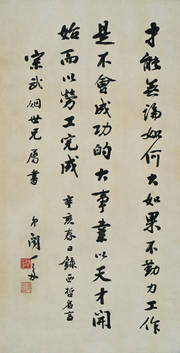 才能無論如何大如果不勤力工作
是不會成功的大事業以天才開
始而以勞工完成
辛亥春日錄西哲名言
宗武姻世兄屬書
弟